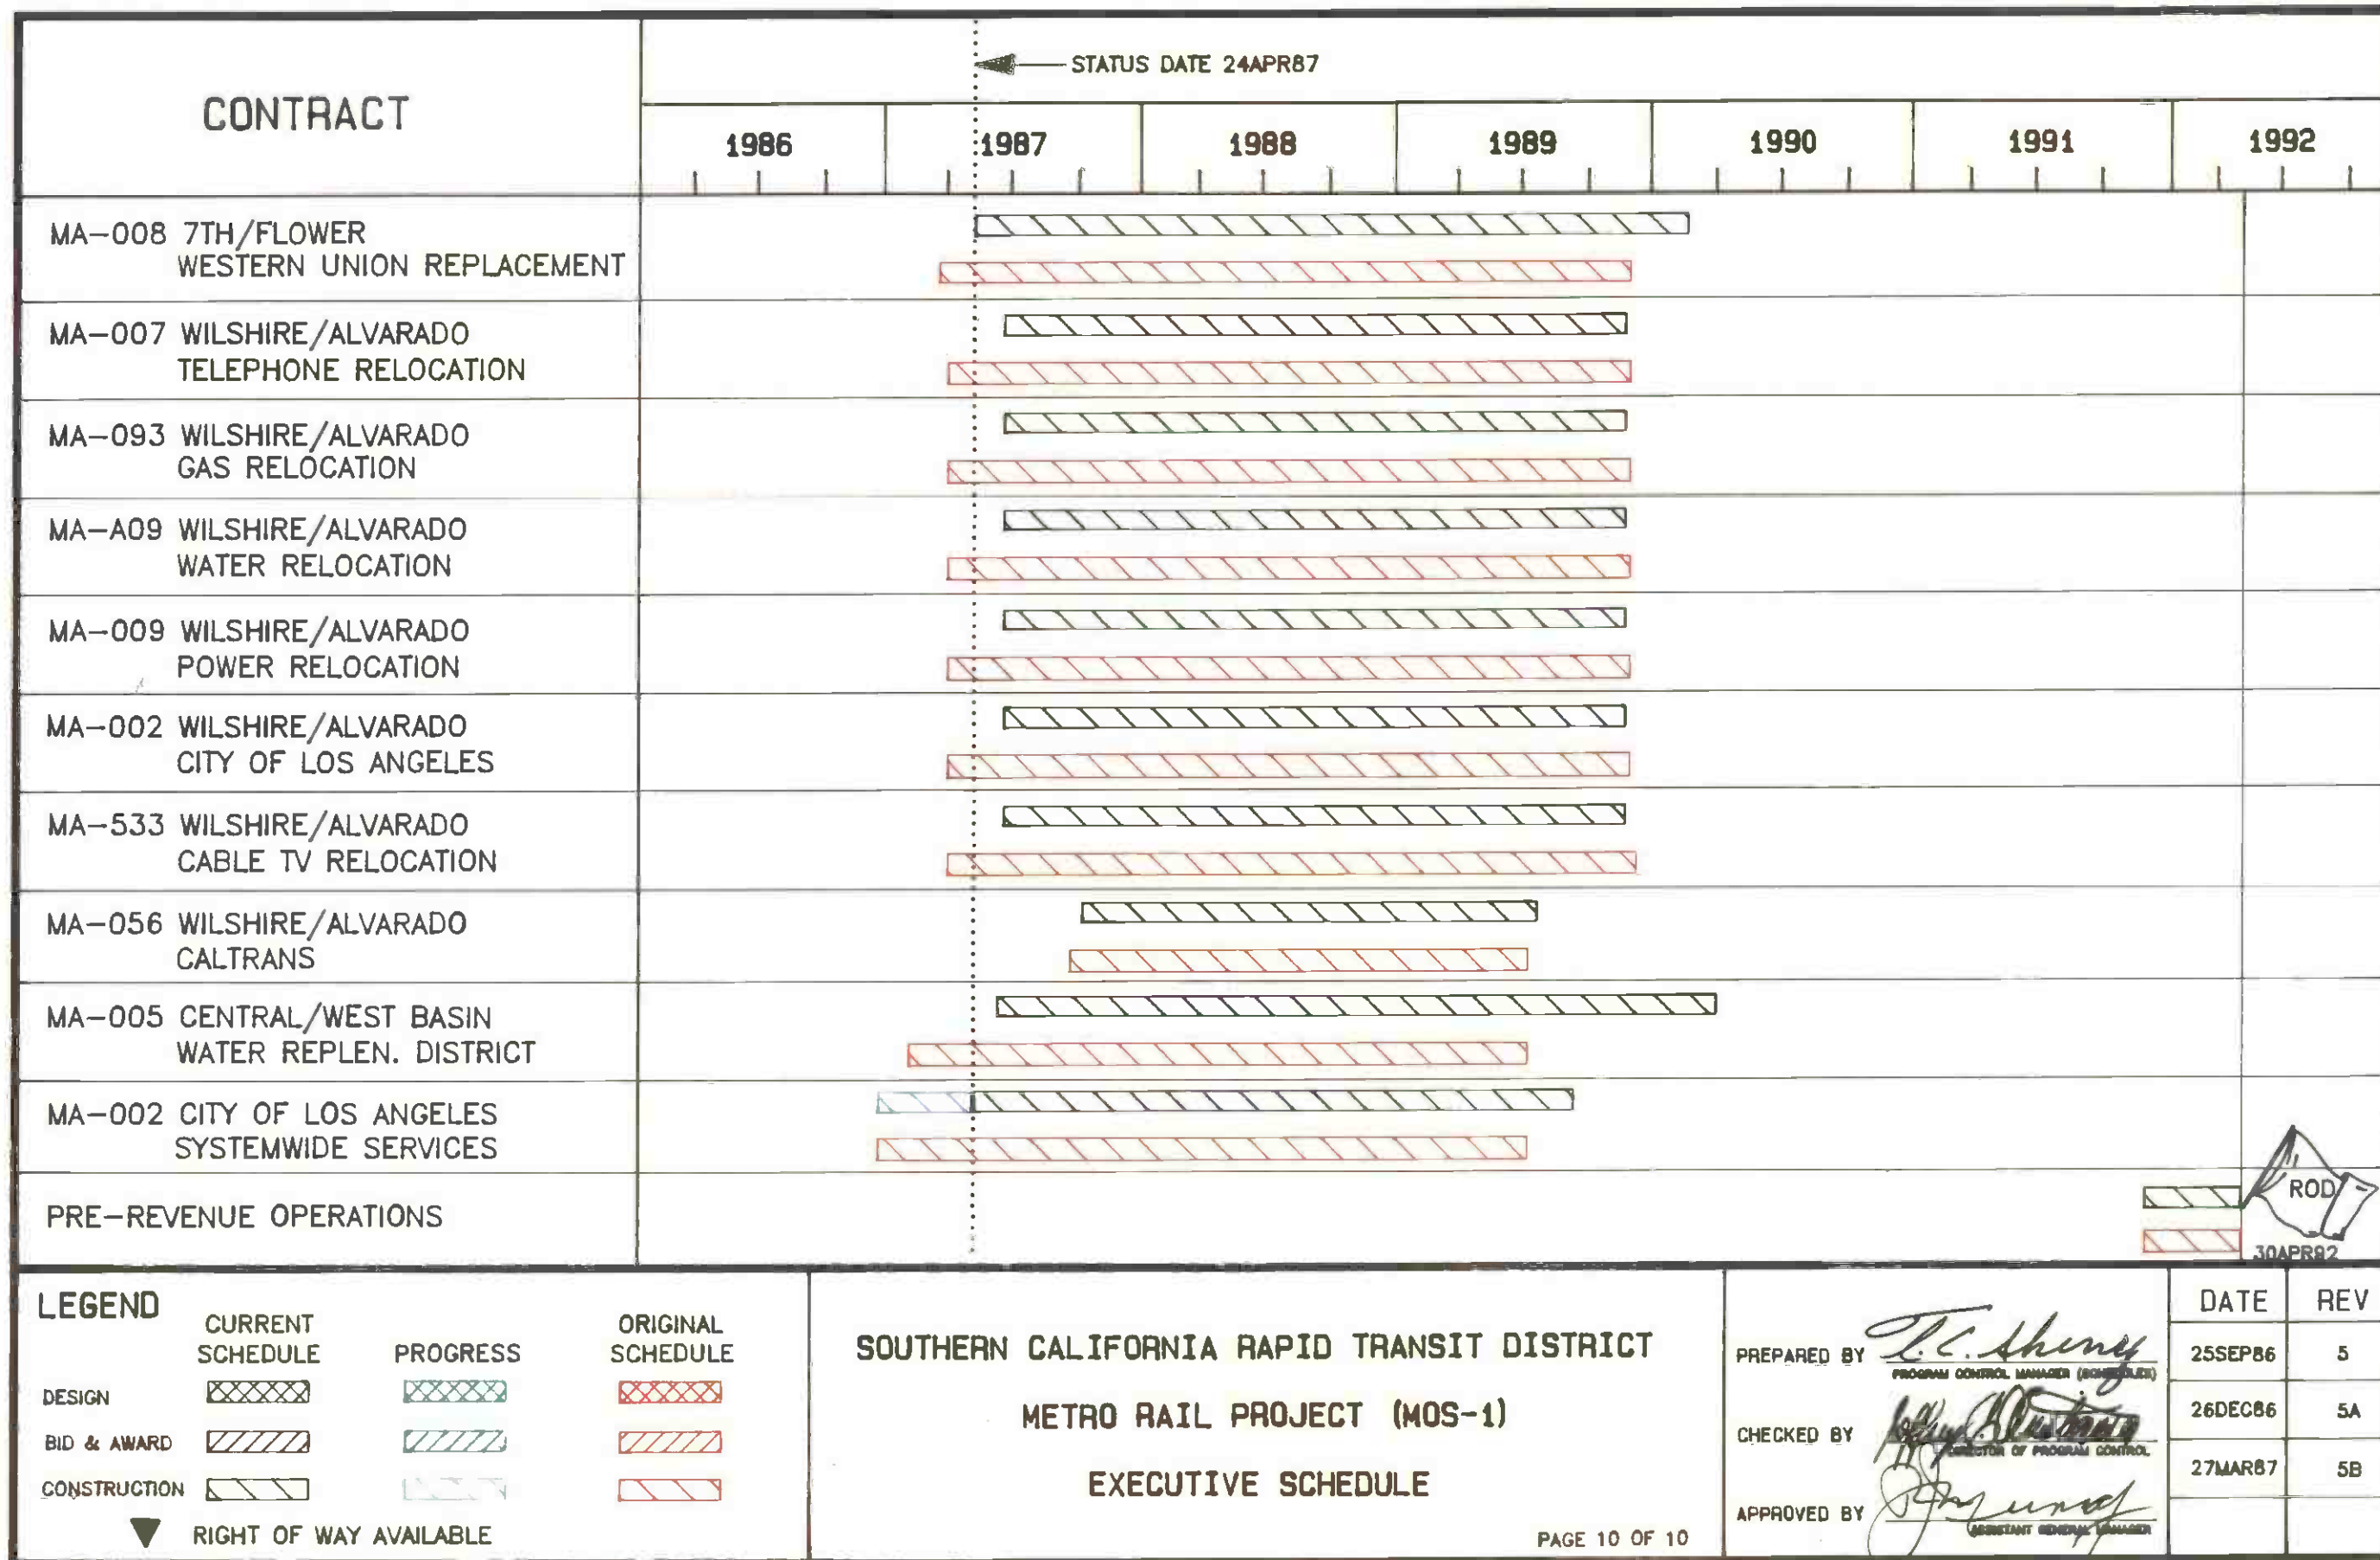 CONTRACT
STATUS DATE 24APR87
1986 1987 1988 1989 1990 1991 1992
MA-008 7TH/FLOWER
WESTERN UNION REPLACEMENT
MA-007 WILSHIRE/ALVARADO
TELEPHONE RELOCATION
MA-093 WILSHIRE/ALVARADO
GAS RELOCATION
MA-A09 WILSHIRE/ALVARADO
WATER RELOCATION
MA-009 WILSHIRE/ALVARADO
POWER RELOCATION
MA-002 WILSHIRE/ALVARADO
CITY OF LOS ANGELES
MA-533 WILSHIRE/ALVARADO
CABLE TV RELOCATION
MA-056 WILSHIRE/ALVARADO
CALTRANS
MA-005 CENTRAL/WEST BASIN
WATER REPLEN. DISTRICT
MA-002 CITY OF LOS ANGELES
SYSTEMWIDE SERVICES
PRE-REVENUE OPERATIONS
ROD
30APR92
LEGEND
CURRENT SCHEDULE
PROGRESS
ORIGINAL SCHEDULE
DESIGN
BID & AWARD
CONSTRUCTION
RIGHT OF WAY AVAILABLE
SOUTHERN CALIFORNIA RAPID TRANSIT DISTRICT
METRO RAIL PROJECT (MOS-1)
EXECUTIVE SCHEDULE
PAGE 10 OF 10
PREPARED BY
PROGRAM CONTROL MANAGER (SCHEDULES)
CHECKED BY
DIRECTOR OF PROGRAM CONTROL
APPROVED BY
ASSISTANT GENERAL MANAGER
DATE REV
25SEP86 5
26DEC86 5A
27MAR87 5B